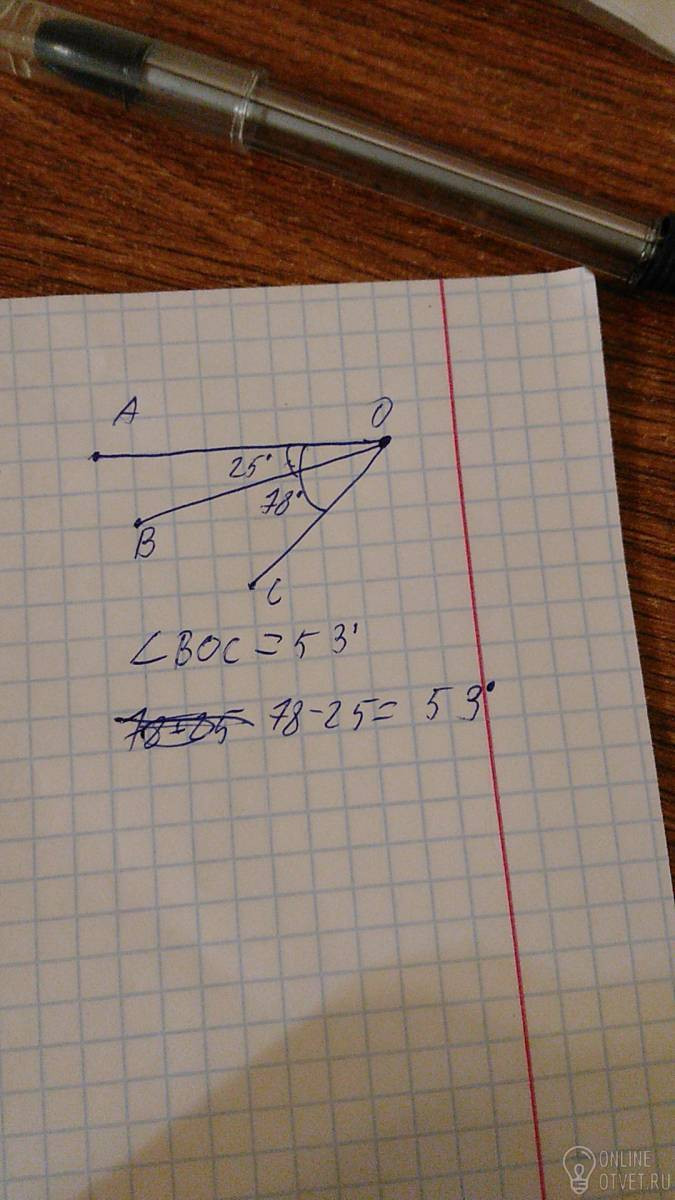 A O
25°
78°
B
C
∠BOC = 53°
78-25= 53°
ONLINE
OTVET.RU